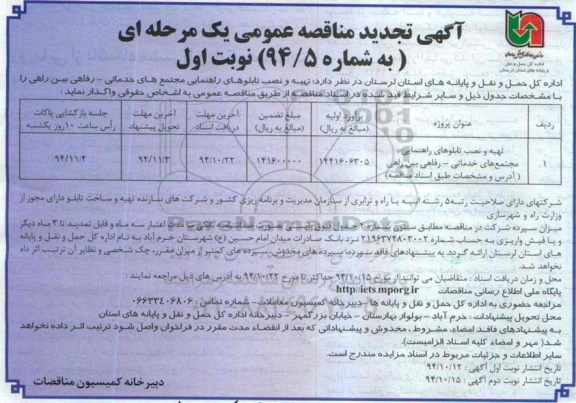 آگهی تجدید مناقصه عمومی یک مرحله ای
( به شماره ۹۴/۵) نوبت اول
اداره کل حمل و نقل و پایانه های استان لرستان در نظر دارد: تهیه و نصب تابلوهای راهنمایی مجتمع های خدماتی - رفاهی بین راهی را
با مشخصات جدول ذیل و سایر شرایط قید شده در اسناد مناقصه از طریق مناقصه عمومی به اشخاص حقوقی واگذار نماید :
ردیف
عنوان پروژه
برآورد اولیه (مبالغ به ریال)
مبلغ تضمین (مبالغ به ریال)
آخرین مهلت دریافت اسناد
آخرین مهلت تحویل پیشنهاد
جلسه بازگشایی پاکات رأس ساعت ۱۰ روز یکشنبه
۱
تهیه و نصب تابلوهای راهنمایی
مجتمع‌های خدماتی - رفاهی بین راهی
( آدرس و مشخصات طبق اسناد مناقصه)
۱۴۴۱۶۰۶۳۰۵
۱۴۱۶۰۰۰۰۰
۹۴/۱۰/۲۲
۹۴/۱۱/۳
۹۴/۱۱/۴
شرکتهای دارای صلاحیت رتبه۵ رشته ابنیه یا راه و ترابری از سازمان مدیریت و برنامه ریزی کشور و شرکت های سازنده تهیه و ساخت تابلو دارای مجوز از
وزارت راه و شهرسازی
میزان سپرده شرکت در مناقصه مطابق ستون شماره ۲ جدول فوق اعتبار سه ماه و قابل تمدید تا ۳ ماه دیگر
و یا فیش واریزی به حساب شماره ۲۱۹۶۳۷۴۸۰۳۰۰۲ نزد بانک صادرات میدان امام حسین (ع) شهرستان خرم آباد به نام اداره کل حمل و نقل و پایانه
های استان لرستان ارائه گردد. به پیشنهادهای فاقد سپرده، سپرده های مخدوش، سپرده های کمتر از میزان مقرر، چک شخصی و نظایر آن ترتیب اثر داده
نخواهد شد.
محل و زمان دریافت اسناد : متقاضیان می توانند از تاریخ ۹۴/۱۰/۱۵ حداکثر تا مورخ ۹۴/۱۰/۲۲ به آدرس های ذیل مراجعه نمایند :
پایگاه ملی اطلاع رسانی مناقصات http:iets mporg ir
مراجعه حضوری به اداره کل حمل و نقل و پایانه ها - دبیرخانه کمیسیون معاملات- شماره تماس : ۰۶۶۳۳۴۰۶۸۰۶
محل تحویل پیشنهادات : خرم آباد - بولوار بهارستان - خیابان بزرگمهر - دبیرخانه اداره کل حمل و نقل و پایانه های استان
به پیشنهادهای فاقد امضاء، مشروط ، مخدوش و پیشنهاداتی که بعد از انقضاء مدت مقرر در فراخوان واصل شود ترتیب اثر داده نخواهد
شد( مهر و امضاء کلیه اسناد الزامیست).
سایر اطلاعات و جزئیات مربوط در اسناد مزایده مندرج است.
تاریخ انتشار نوبت اول آگهی : ۹۴/۱۰/۱۲
تاریخ انتشار نوبت دوم آگهی : ۹۴/۱۰/۱۵
دبیرخانه کمیسیون مناقصات